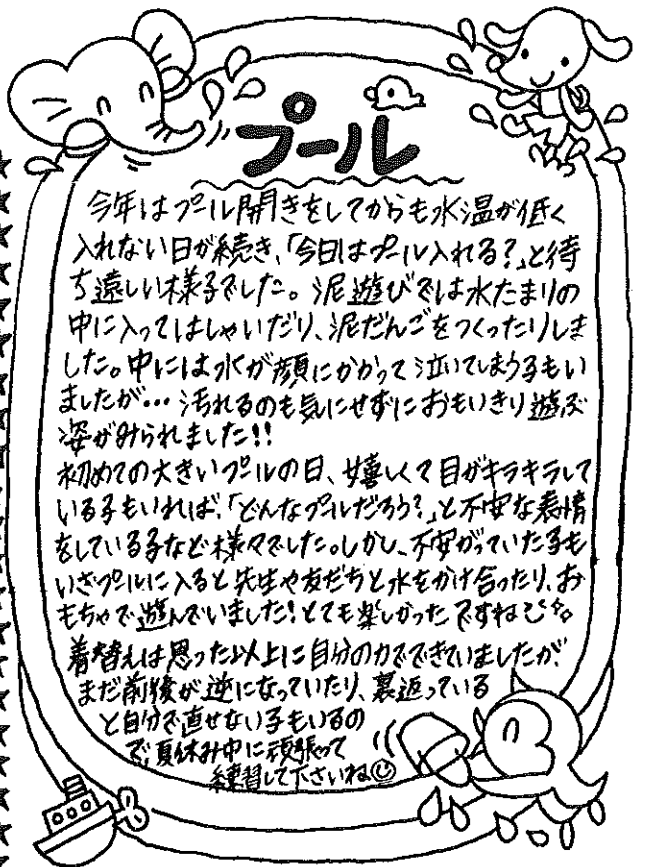 プール
今年はプール開きをしてからも水温が低く
入れない日が続き、「今日はプール入れる?」と待
ち遠しい様子でした。泥遊びでは水たまりの
中に入ってはしゃいだり、泥だんごをつくったりしま
した。中には水が顔にかかって泣いてしまう子もい
ましたが… 汚れるのも気にせずにおもいきり遊ぶ
姿がみられました!!
初めての大きいプールの日、嬉しくて目がキラキラして
いる子もいれば、「どんなプールだろう?」と不安な表情
をしている子など様々でした。しかし、不安がっていた子も
いざプールに入ると先生や友だちと水をかけ合ったり、お
もちゃで遊んでいました!とても楽しかったですね
着替えは思った以上に自分の力でできていましたが
まだ前後が逆になっていたり、裏返っている
と自分で直せない子もいるの
で、夏休み中に頑張って
練習して下さいね